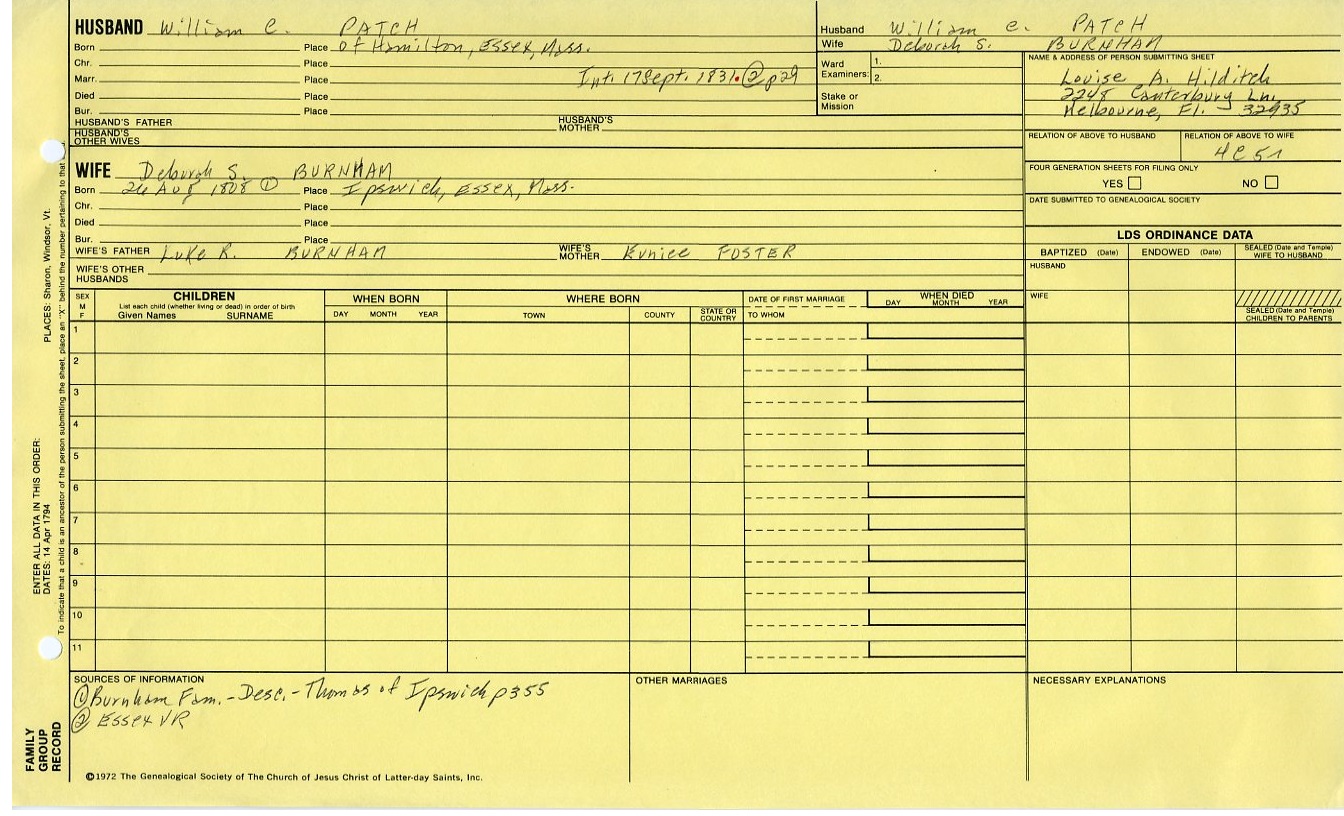 HUSBAND William C. PATCH
Born Place of Hamilton, Essex, Mass.
Chr. Place
Marr. Place Int. 17 Sept. 1831. ② p29
Died Place
Bur. Place
HUSBAND'S FATHER HUSBAND'S MOTHER
HUSBAND'S OTHER WIVES
Husband William C. PATCH
Wife Deborah S. BURNHAM
Ward Examiners: 1.
2.
Stake or Mission
NAME & ADDRESS OF PERSON SUBMITTING SHEET
Louise A. Hilditch
2245 Canterbury Ln.
Melbourne, Fl. 32935
RELATION OF ABOVE TO HUSBAND RELATION OF ABOVE TO WIFE
4C5r
FOUR GENERATION SHEETS FOR FILING ONLY
YES NO
DATE SUBMITTED TO GENEALOGICAL SOCIETY
WIFE Deborah S. BURNHAM
Born 26 Aug 1808 ① Place Ipswich, Essex, Mass.
Chr. Place
Died Place
Bur. Place
WIFE'S FATHER Luke R. BURNHAM WIFE'S MOTHER Eunice FOSTER
WIFE'S OTHER HUSBANDS
LDS ORDINANCE DATA
BAPTIZED (Date) ENDOWED (Date) SEALED (Date and Temple) WIFE TO HUSBAND
HUSBAND
WIFE
SEALED (Date and Temple) CHILDREN TO PARENTS
SEX M F
CHILDREN
List each child (whether living or dead) in order of birth
Given Names SURNAME
WHEN BORN
DAY MONTH YEAR
WHERE BORN
TOWN COUNTY STATE OR COUNTRY
DATE OF FIRST MARRIAGE
TO WHOM
WHEN DIED
DAY MONTH YEAR
1
2
3
4
5
6
7
8
9
10
11
SOURCES OF INFORMATION
① Burnham Fam. - Desc. - Thomas of Ipswich p355
② Essex VR
OTHER MARRIAGES
NECESSARY EXPLANATIONS
©1972 The Genealogical Society of The Church of Jesus Christ of Latter-day Saints, Inc.
FAMILY GROUP RECORD
ENTER ALL DATA IN THIS ORDER:
DATES: 14 Apr 1794
PLACES: Sharon, Windsor, Vt.
To indicate that a child is an ancestor of the person submitting the sheet, place an "X" behind the number pertaining to that